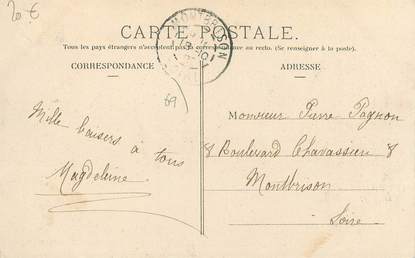 20 €
CARTE POSTALE.
Tous les pays étrangers n'acceptent pas au recto. (Se renseigner à la poste).
CORRESPONDANCE
ADRESSE
MONTBRISON
69
Mille baisers à tous
Magdeleine
Monsieur Pierre Pagnon
8 Boulevard Chavassieu 8
Montbrison
Loire